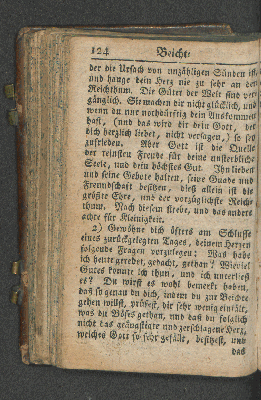 124 Beicht-
der die Ursach von unzähligen Sünden ist,
und hange dein Herz nie zu sehr an den
Reichthum. Die Güter der Welt sind ver-
gänglich. Sie machen dir nicht glücklich, und
wenn du nur nothdürftig dein Auskommen
hast, (und das wird dir dein Gott, der
dich herzlich liebet, nicht versagen,) so sey
zufrieden. Aber Gott ist die Quelle
der reinsten Freude für deine unsterbliche
Seele, und dein höchstes Gut. Ihn lieben
und seine Gebote halten, seine Gnade und
Freundschaft besitzen, dieß allein ist die
größte Ehre, und der vorzüglichste Reich-
thum. Nach diesem strebe, und das andere
achte für Kleinigkeit.
2) Gewöhne dich öfters am Schlusse
eines zurückgelegten Tages, deinem Herzen
folgende Fragen vorzulegen: Was habe
ich heute geredet, gedacht, gethan? Wieviel
Gutes konnte ich thun, und ich unterließ
es? Du wirst es wohl bemerkt haben,
daß so genau du dich, indem du zur Beichte
gehen willst, prüfest, dir sehr wenig einfällt,
was du Böses gethan, und daß du folglich
nicht das geängstigte und zerschlagene Herz,
welches Gott so sehr gefällt, besitzest, und
das